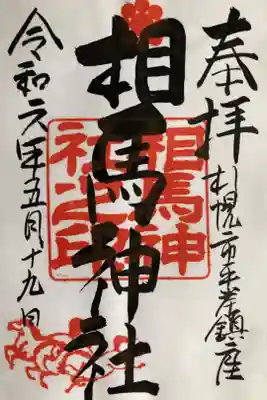 奉拝
札幌市平岸鎮座
相馬神社
相馬神
社之印
令和元年五月十九日